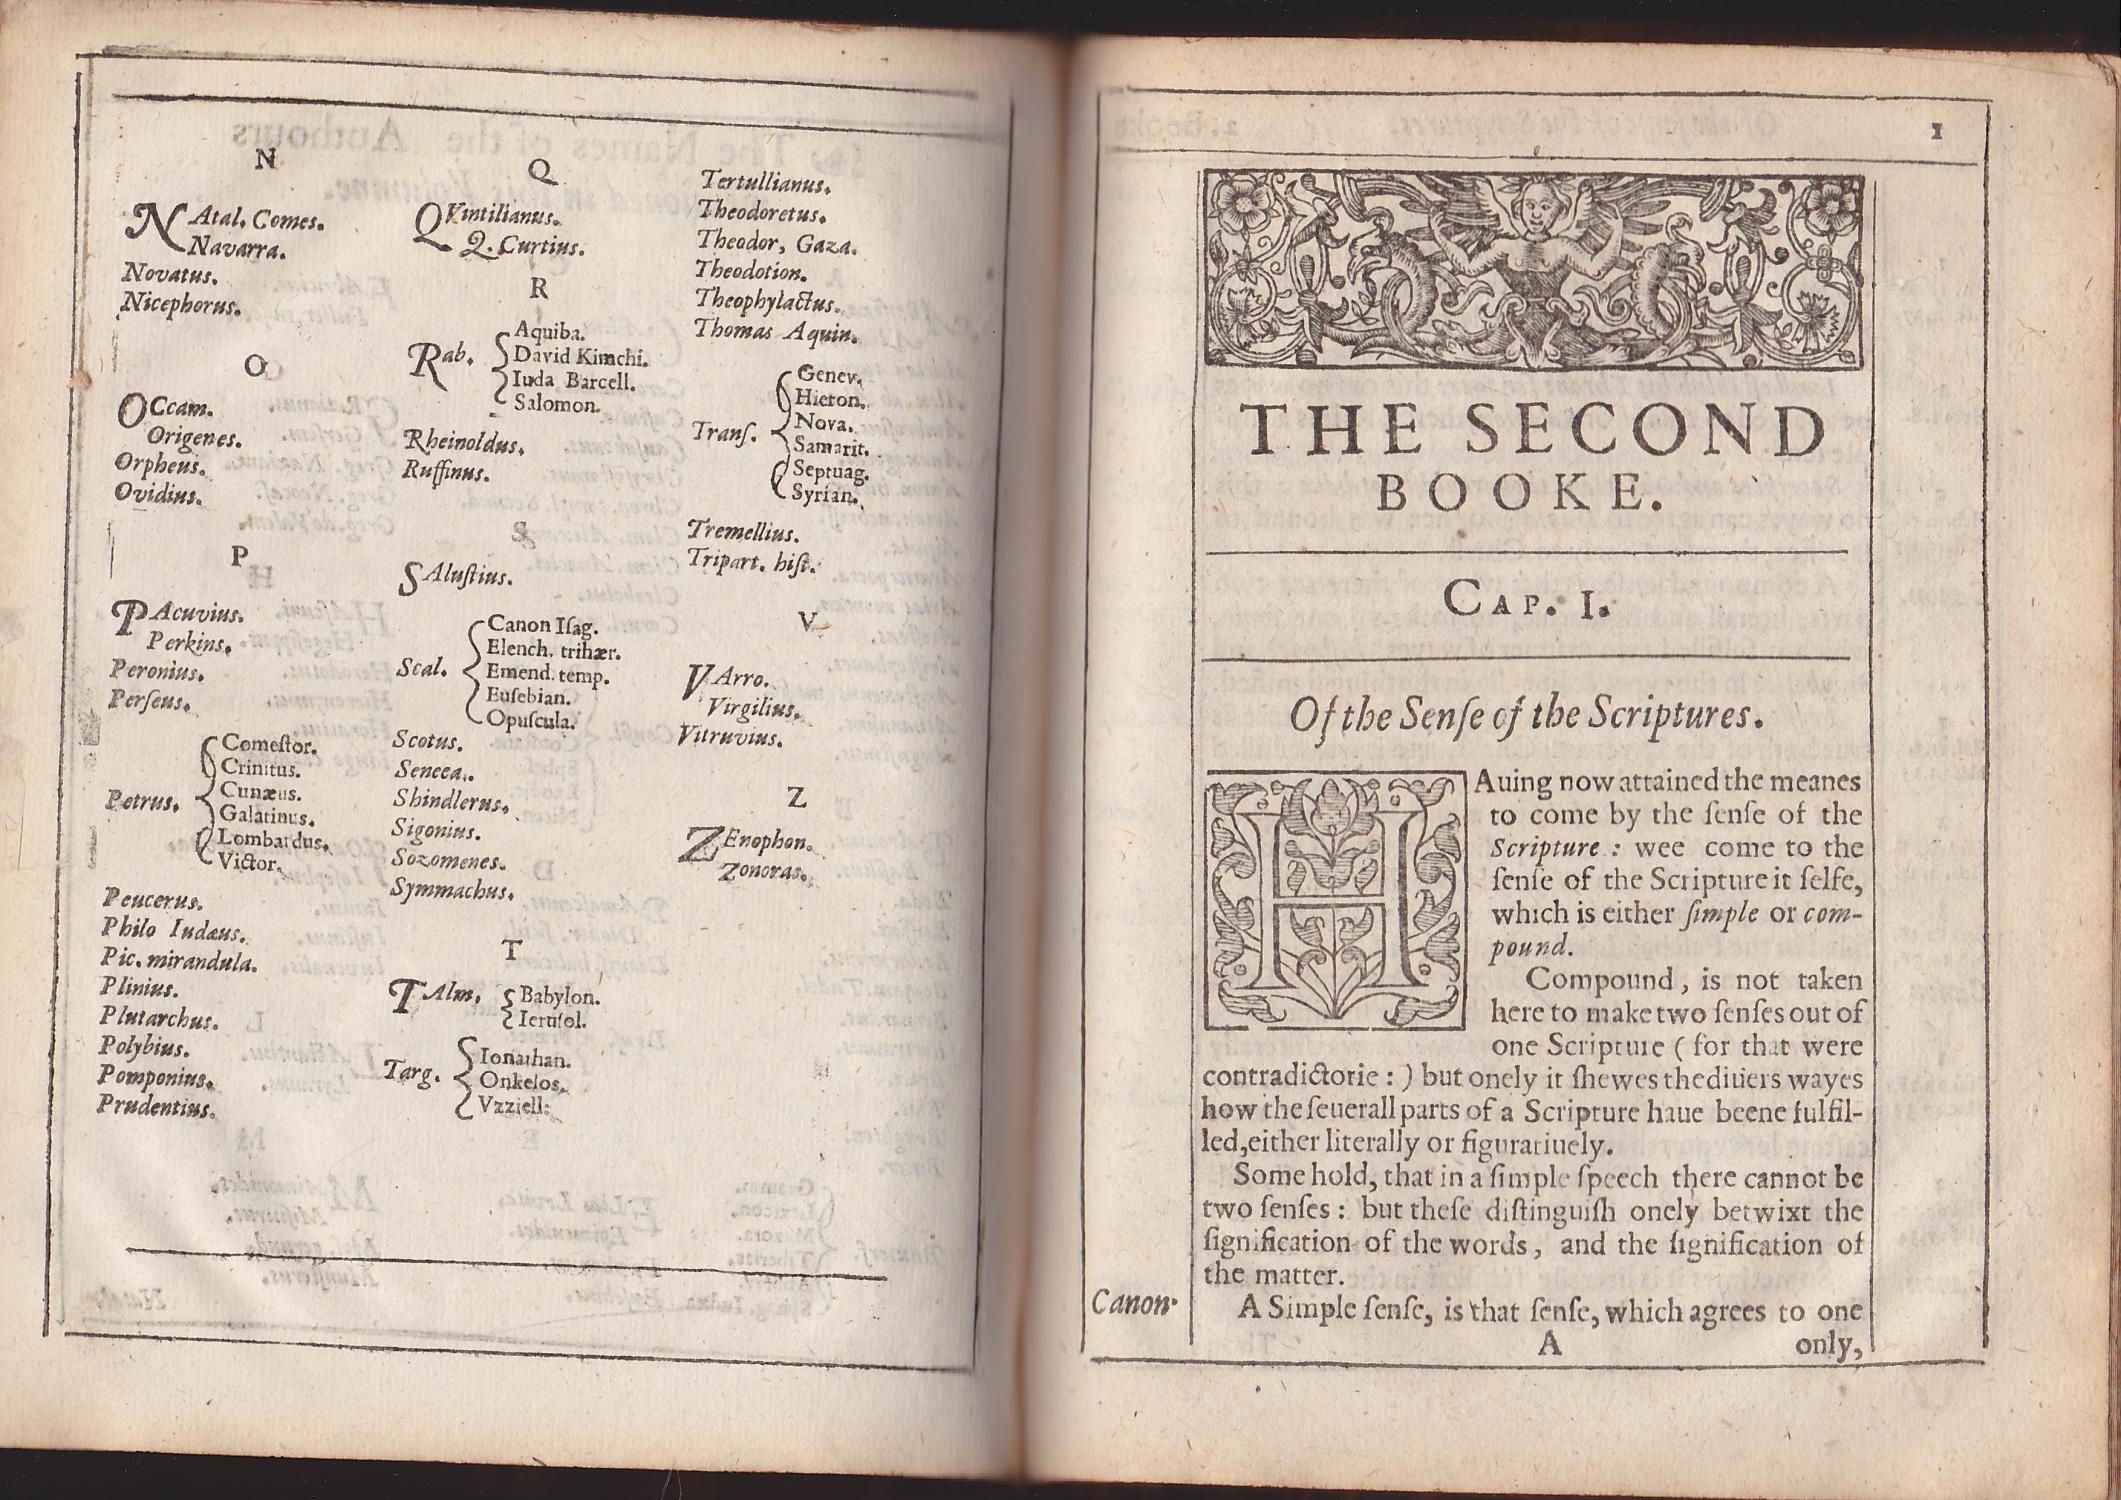 N
NAtal. Comes.
Navarra.
Novatus.
Nicephorus.
O
OCcam.
Origenes.
Orpheus.
Ovidius.
P
PAcuvius.
Perkins.
Peronius.
Perſeus.
Petrus.
Comeſtor.
Crinitus.
Cunæus.
Galatinus.
Lombardus.
Victor.
Peucerus.
Philo Iudæus.
Pic. mirandula.
Plinius.
Plutarchus.
Polybius.
Pomponius.
Prudentius.
Q
QVintilianus.
Q. Curtius.
R
Rab.
Aquiba.
David Kimchi.
Iuda Barcell.
Salomon.
Rheinoldus.
Ruffinus.
S
SAluſtius.
Scal.
Canon Iſag.
Elench. trihær.
Emend. temp.
Euſebian.
Opuſcula.
Scotus.
Seneca.
Shindlerus.
Sigonius.
Sozomenes.
Symmachus.
T
TAlm.
Babylon.
Ieruſol.
Targ.
Ionathan.
Onkelos.
Vzziell:
Tertullianus.
Theodoretus.
Theodor, Gaza.
Theodotion.
Theophylactus.
Thomas Aquin.
Tranſ.
Genev.
Hieron.
Nova.
Samarit.
Septuag.
Syrian.
Tremellius.
Tripart. hiſt.
V
VArro.
Virgilius.
Vitruvius.
Z
ZEnophon.
Zonoras.
1
THE SECOND
BOOKE.
CAP. I.
Of the Senſe of the Scriptures.
HAuing now attained the meanes
to come by the ſenſe of the
Scripture : wee come to the
ſenſe of the Scripture it ſelfe,
which is either ſimple or com-
pound.
Compound, is not taken
here to make two ſenſes out of
one Scripture ( for that were
contradictorie : ) but onely it ſhewes the diuers wayes
how the ſeuerall parts of a Scripture haue beene fulfil-
led, either literally or figuratiuely.
Some hold, that in a ſimple ſpeech there cannot be
two ſenſes : but theſe diſtinguiſh onely betwixt the
ſignification of the words, and the ſignification of
the matter.
Canon.
A Simple ſenſe, is that ſenſe, which agrees to one
A
only,